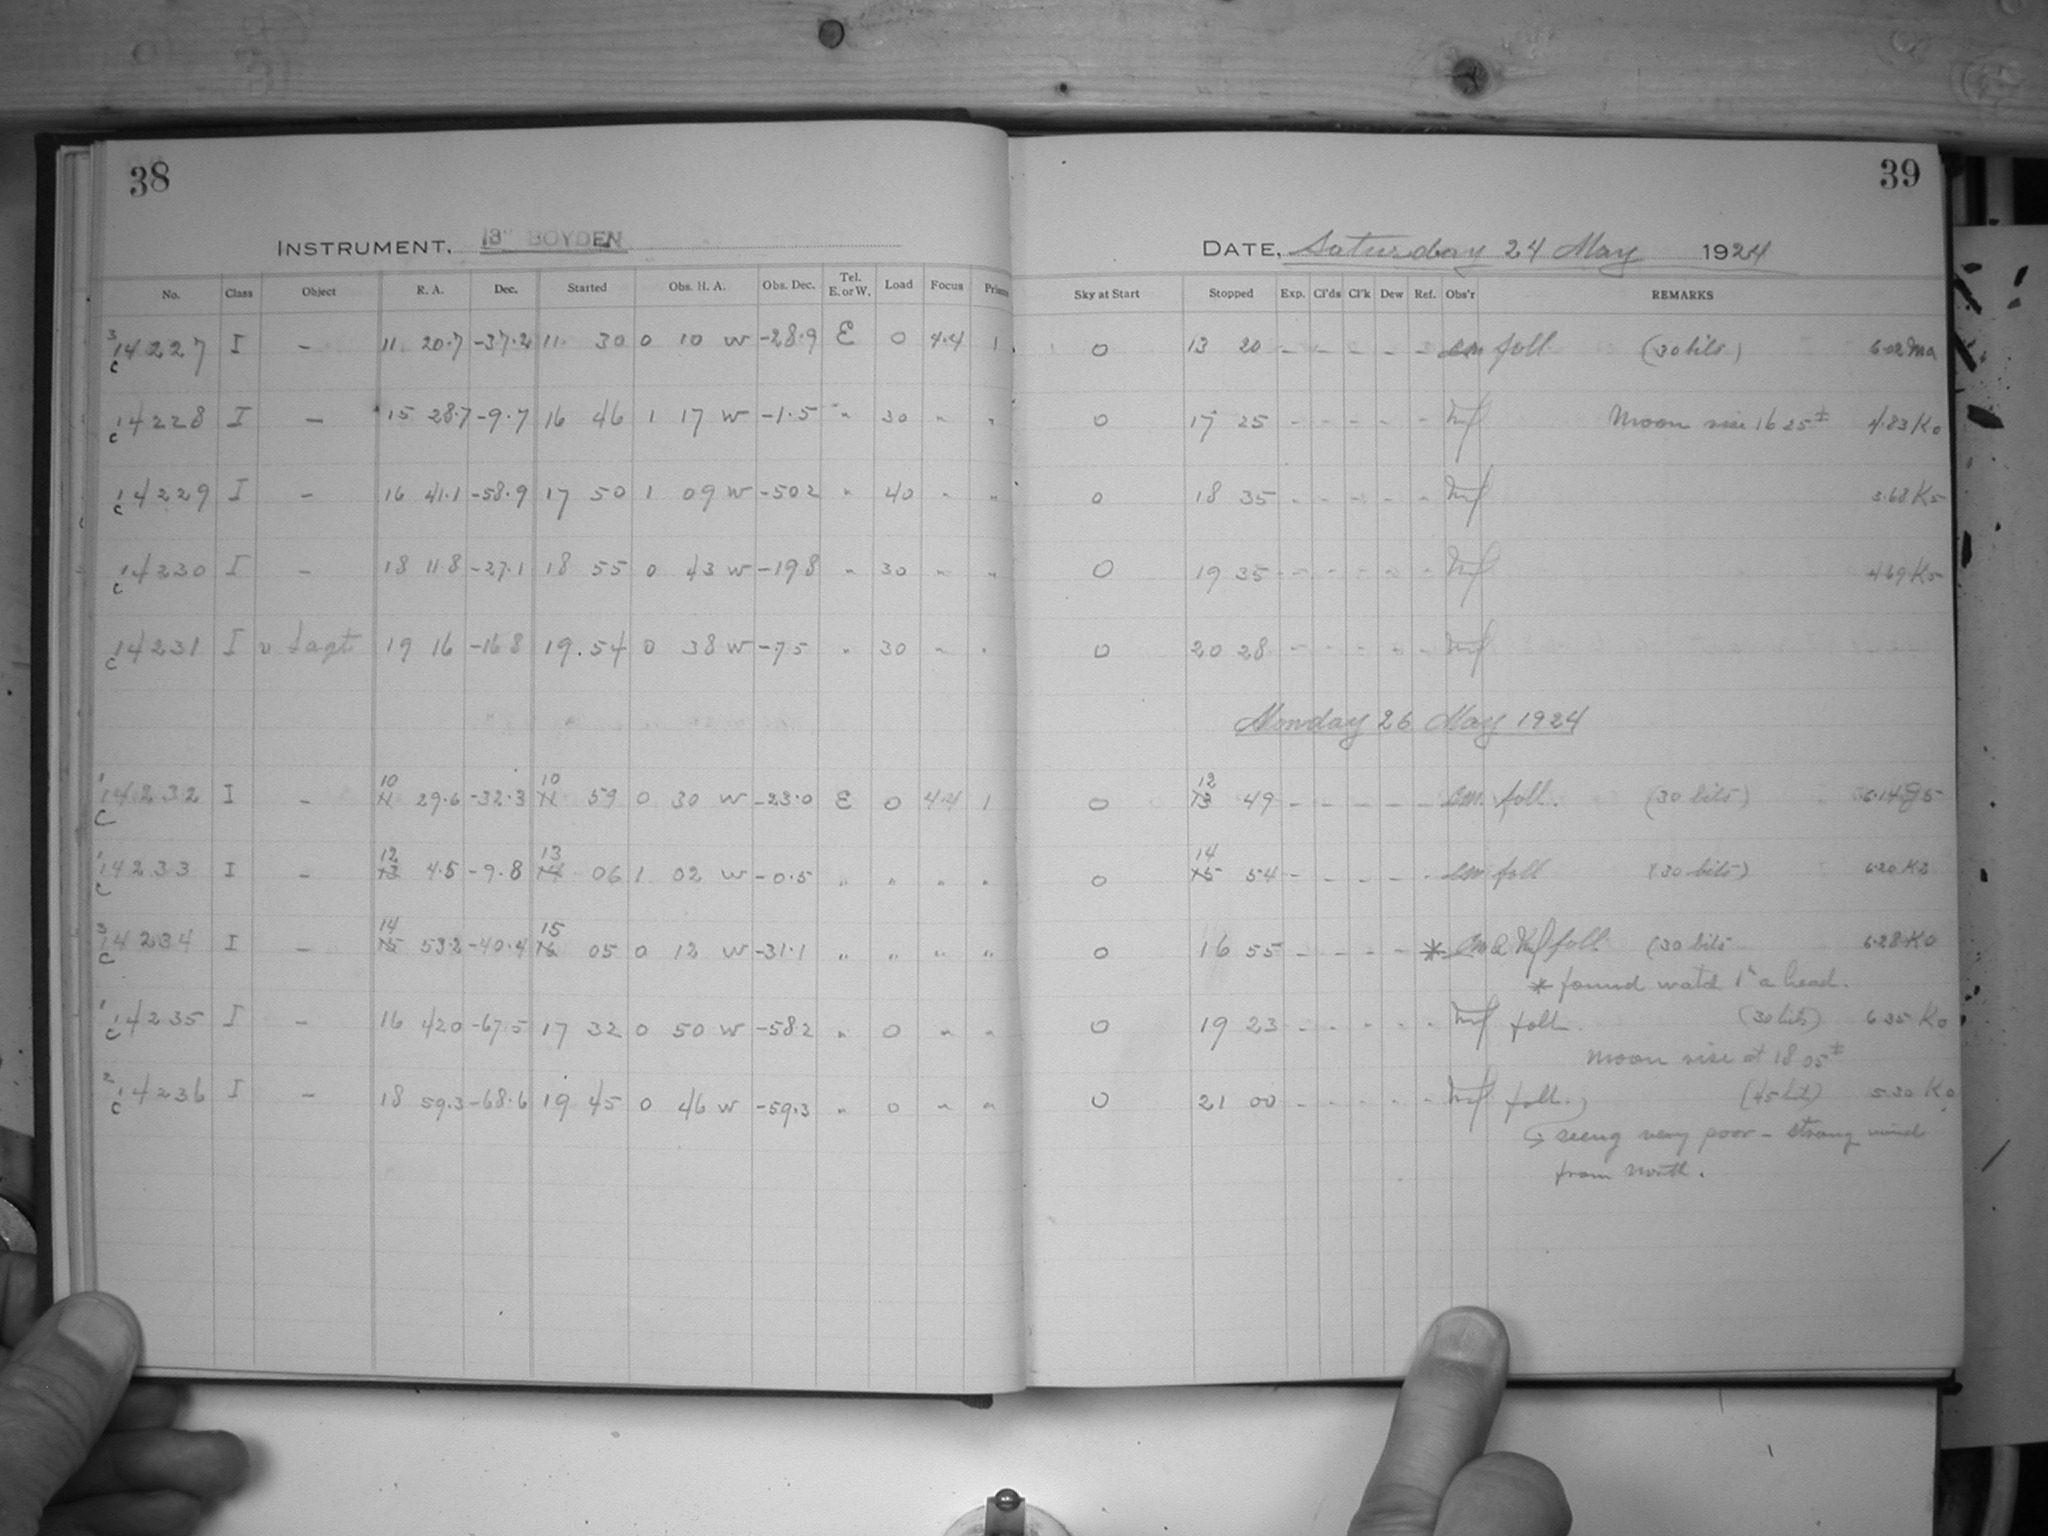 38
39
INSTRUMENT. 13" BOYDEN
DATE, Saturday 24 May 1924
No. Class Object R. A. Dec. Started Obs. H. A. Obs. Dec. Tel. E. or W. Load Focus Prism Sky at Start Stopped Exp. Cl'ds Cl'k Dew Ref. Obs'r REMARKS
3 C 14227 I – 11 20.7 -37.2 11 30 0 10 W -28.9 E 0 4.4 1 0 13 20 – – – – – cm foll. (30 bits) 6.02 Ma
C 14228 I – 15 28.7 -9.7 16 46 1 17 W -1.5 " 30 " " 0 17 25 – – – – – Moon rise 16 25± 4.83 K0
C 14229 I – 16 41.1 -58.9 17 50 1 09 W -50 2 " 40 " " 0 18 35 – – – – – 3.68 K5
C 14230 I – 18 11.8 -27.1 18 55 0 43 W -19 8 " 30 " " 0 19 35 – – – – – 4.69 K5
C 14231 I υ Sagt 19 16 -16 8 19.54 0 38 W -7 5 " 30 " " 0 20 28 – – – – –
Monday 26 May 1924
1 C 14232 I – 10 11 29.6 -32.3 10 11 59 0 30 W -23.0 E 0 4.4 1 0 12 13 49 – – – – – cm foll. (30 bits) 6.14 G5
1 C 14233 I – 12 13 4.5 -9.8 13 14 06 1 02 W -0.5 " " " " 0 14 15 54 – – – – – cm foll (30 bits)
3 C 14234 I – 14 15 53.2 -40.4 15 16 05 0 12 W -31.1 " " " " 0 16 55 – – – – * foll. (30 bits 6.28 K0
* found watch 1h a head.
1 C 14235 I – 16 42.0 -67.5 17 32 0 50 W -58 2 " 0 " " 0 19 23 – – – – – foll. (30 bits) 6.35 K0
Moon rise at 18 05±
2 C 14236 I – 18 59.3 -68.6 19 45 0 46 W -59.3 " 0 " " 0 21 00 – – – – – foll. (45 bit) 5.30 K0
seeing very poor – strong wind
from North.